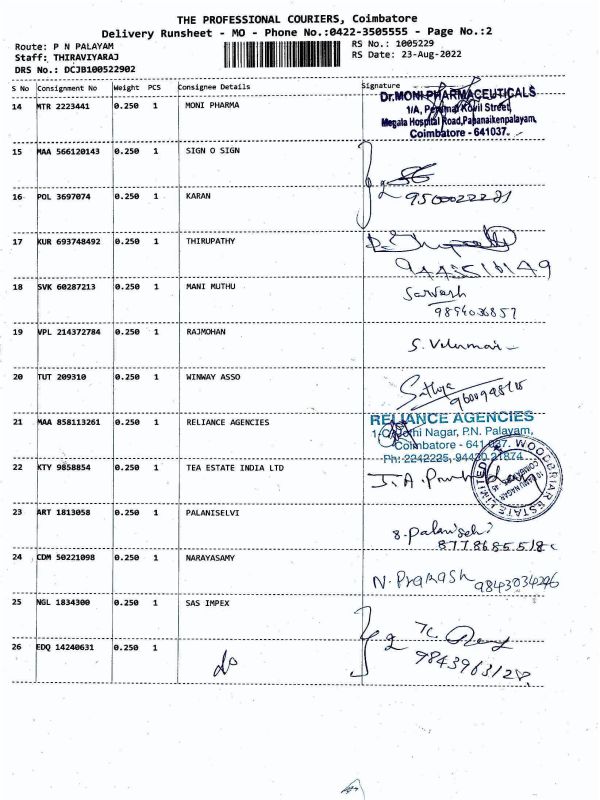 THE PROFESSIONAL COURIERS, Coimbatore
Delivery Runsheet - MO - Phone No.:0422-3505555 - Page No.:2
Route: P N PALAYAM
RS No.: 1005229
Staff: THIRAVIYARAJ
RS Date: 23-Aug-2022
DRS No.: DCJB100522902
S No Consignment No Weight PCS Consignee Details Signature
14 MTR 2223441 0.250 1 MONI PHARMA
Dr.MONI PHARMACEUTICALS
1/A, Perumal Kovil Street,
Megala Hospital Road, Papanaikenpalayam,
Coimbatore - 641037.
15 MAA 566120143 0.250 1 SIGN O SIGN
16 POL 3697074 0.250 1 KARAN
2
17 KUR 693748492 0.250 1 THIRUPATHY
18 SVK 60287213 0.250 1 MANI MUTHU
Sarvesh
9894036857
19 VPL 214372784 0.250 1 RAJMOHAN
20 TUT 209310 0.250 1 WINWAY ASSO
Sathya
21 MAA 858113261 0.250 1 RELIANCE AGENCIES
RELIANCE AGENCIES
Nagar, P.N. Palayam,
Coimbatore - 641 037.
Ph: 2242225, 94430 21874
22 KTY 9858854 0.250 1 TEA ESTATE INDIA LTD
WOODBRIAR ESTATE LIMITED
23 ART 1813058 0.250 1 PALANISELVI
8778685518
24 CDM 50221098 0.250 1 NARAYASAMY
N. Prakash 9843034296
25 NGL 1834300 0.250 1 SAS IMPEX
2
26 EDQ 14240631 0.250 1
9843963128